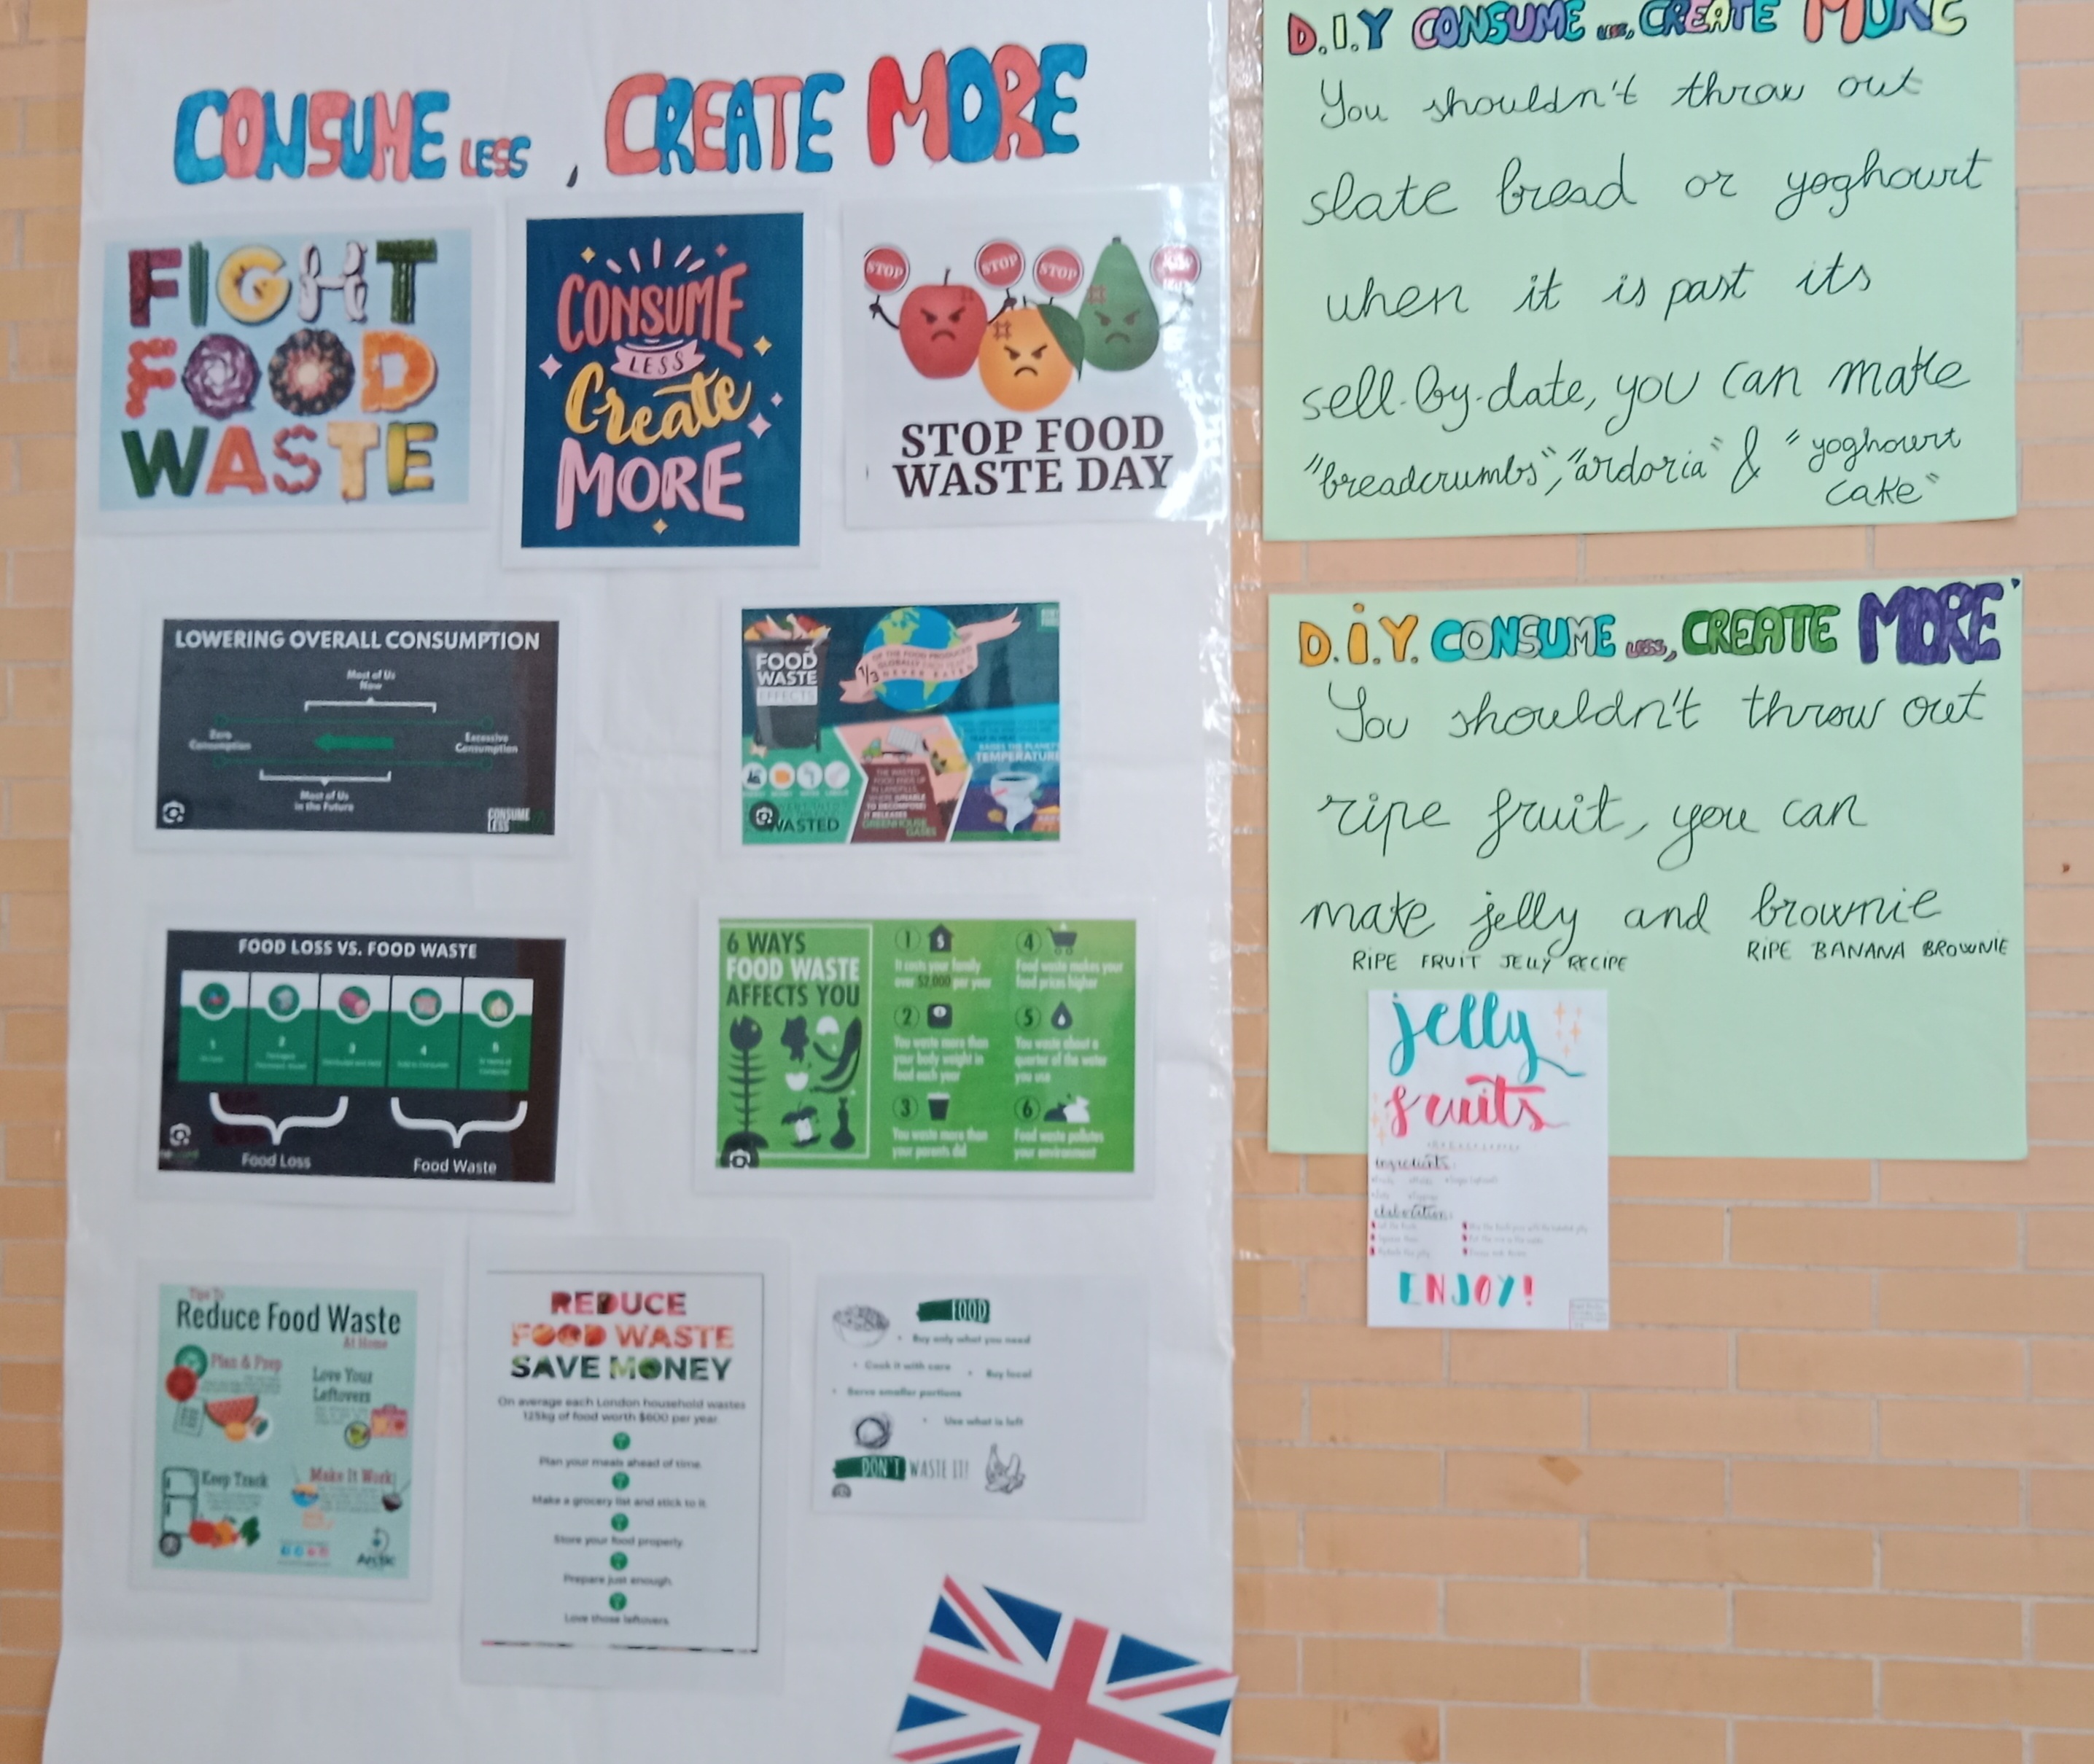 CONSUME LESS, CREATE MORE
FIGHT
FOOD
WASTE
CONSUME
LESS
Create
MORE
STOP
STOP
STOP
STOP FOOD
WASTE DAY
LOWERING OVERALL CONSUMPTION
Most of Us
Now
Zero
Consumption
Excessive
Consumption
Most of Us
in the Future
CONSUME
LESS
FOOD
WASTE
EFFECTS
1/3 OF THE FOOD PRODUCED
GLOBALLY EACH YEAR IS
NEVER EATEN
THE WASTED
FOOD ENDS UP
IN LANDFILLS,
WHERE UNABLE
TO DECOMPOSE,
IT RELEASES
GREENHOUSE
GASES
RAISES THE PLANET'S
TEMPERATURE
WASTED
FOOD LOSS VS. FOOD WASTE
1
2
3
4
5
Food Loss
Food Waste
6 WAYS
FOOD WASTE
AFFECTS YOU
1
It costs your family
over $2,000 per year
2
You waste more than
your body weight in
food each year
3
You waste more than
your parents did
4
Food waste makes your
food prices higher
5
You waste about a
quarter of the water
you use
6
Food waste pollutes
your environment
Tips To
Reduce Food Waste
At Home
Plan & Prep
Love Your
Leftovers
Keep Track
Make It Work
Arctic
REDUCE
FOOD WASTE
SAVE MONEY
On average each London household wastes
125kg of food worth $600 per year.
Plan your meals ahead of time.
Make a grocery list and stick to it.
Store your food properly.
Prepare just enough.
Love those leftovers.
FOOD
• Buy only what you need
• Cook it with care
• Buy local
• Serve smaller portions
• Use what is left
DON'T WASTE IT!
D.I.Y CONSUME LESS, CREATE MORE
You shouldn't throw out
slate bread or yoghourt
when it is past its
sell-by-date, you can make
"breadcrumbs", "ardoria" & "yoghourt
cake"
D.I.Y. CONSUME LESS, CREATE MORE
You shouldn't throw out
ripe fruit, you can
make jelly and brownie
RIPE FRUIT JELLY RECIPE
RIPE BANANA BROWNIE
jelly
fruits
ingredients:
elaboration:
ENJOY!